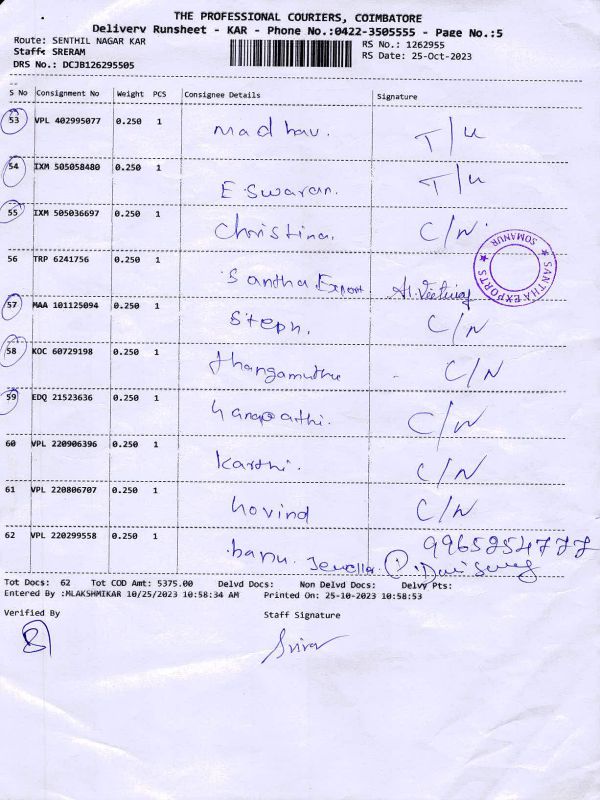 THE PROFESSIONAL COURIERS, COIMBATORE
Delivery Runsheet - KAR - Phone No.:0422-3505555 - Page No.:5
Route: SENTHIL NAGAR KAR RS No.: 1262955
Staff: SRERAM RS Date: 25-Oct-2023
DRS No.: DCJB126295505
S No Consignment No Weight PCS Consignee Details Signature
53 VPL 402995077 0.250 1 madhav. T/U
54 IXM 505058480 0.250 1 Eswaran. T/U
55 IXM 505036697 0.250 1 Christina. C/N
56 TRP 6241756 0.250 1 Santha.Export
★ SANTHA EXPORTS ★ SOMANUR
57 MAA 101125094 0.250 1 Steph. C/N
58 KOC 60729198 0.250 1 thangamuthu C/N
59 EDQ 21523636 0.250 1 C/N
60 VPL 220906396 0.250 1 Karthi. C/N
61 VPL 220806707 0.250 1 Govind C/N
62 VPL 220299558 0.250 1 banu. 9965254777
Tot Docs: 62 Tot COD Amt: 5375.00 Delvd Docs: Non Delvd Docs: Delvy Pts:
Entered By :MLAKSHMIKAR 10/25/2023 10:58:34 AM Printed On: 25-10-2023 10:58:53
Verified By Staff Signature